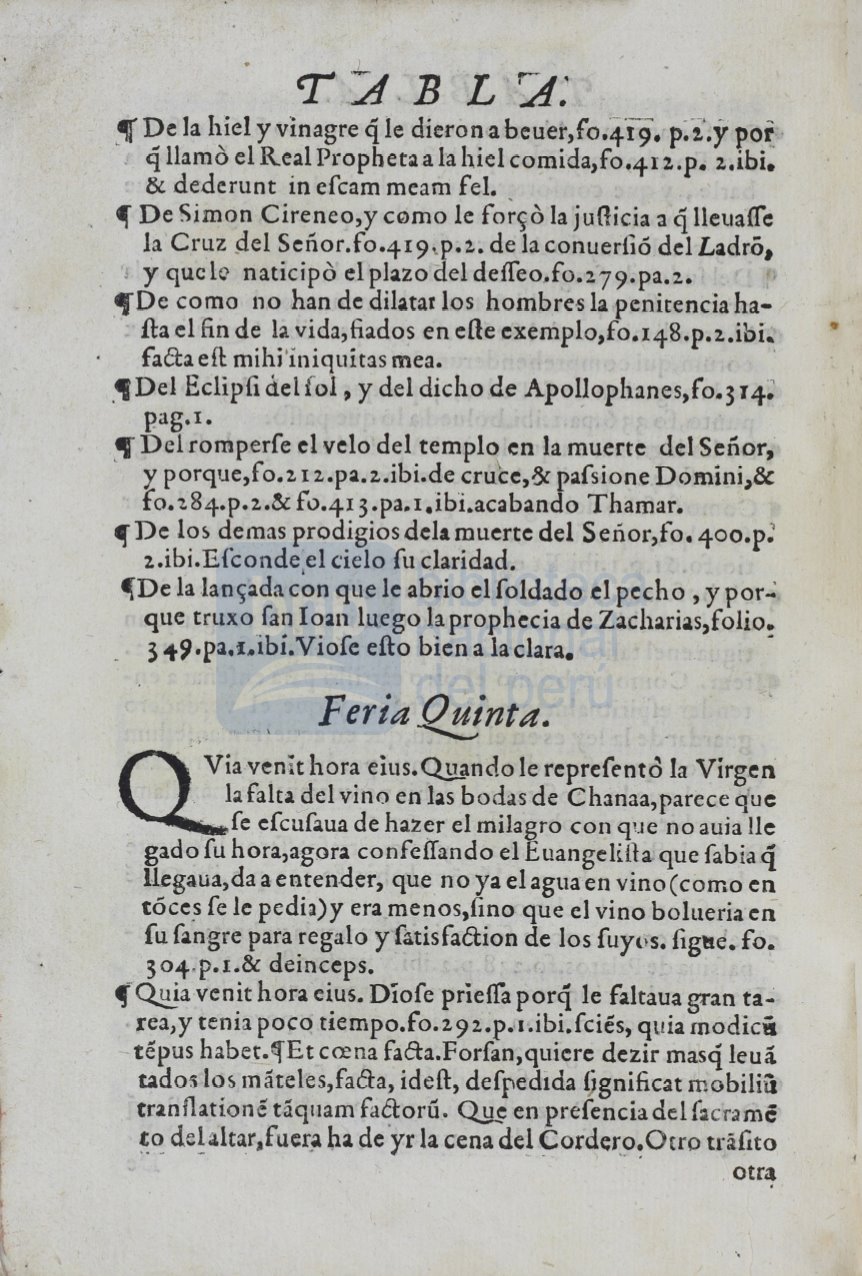 TABLA.
¶ De la hiel y vinagre q̃ le dieron a beuer,fo.419. p.2.y por
q̃ llamò el Real Propheta a la hiel comida,fo.412.p. 2.ibi.
& dederunt in eſcam meam fel.
¶ De Simon Cireneo,y como le forçò la juſticia a q̃ lleuaſſe
la Cruz del Señor.fo.419.p.2. de la conuerſiõ del Ladrõ,
y que le naticipò el plazo del deſſeo.fo.279.pa.2.
¶ De como no han de dilatar los hombres la penitencia ha-
ſta el fin de la vida,fiados en eſte exemplo,fo.148.p.2.ibi.
facta eſt mihi iniquitas mea.
¶ Del Eclipſi del ſol, y del dicho de Apollophanes,fo.314.
pag.1.
¶ Del romperſe el velo del templo en la muerte del Señor,
y porque,fo.212.pa.2.ibi.de cruce,& paſsione Domini,&
fo.284.p.2.& fo.413.pa.1.ibi.acabando Thamar.
¶ De los demas prodigios dela muerte del Señor,fo.400.p.
2.ibi.Eſconde el cielo ſu claridad.
¶ De la lançada con que le abrio el ſoldado el pecho , y por-
que truxo ſan Ioan luego la prophecia de Zacharias,folio.
349.pa.1.ibi.Vioſe eſto bien a la clara.
Feria Quinta.
QVia venit hora eius.Quando le repreſentò la Virgen
la falta del vino en las bodas de Chanaa,parece que
ſe eſcuſaua de hazer el milagro con que no auia lle
gado ſu hora,agora confeſſando el Euangeliſta que ſabia q̃
llegaua,da a entender, que no ya el agua en vino(como en
tõces ſe le pedia)y era menos,ſino que el vino bolueria en
ſu ſangre para regalo y ſatisfaction de los ſuyos. ſigue. fo.
304.p.1.& deinceps.
¶ Quia venit hora eius. Dioſe prieſſa porq̃ le faltaua gran ta-
rea,y tenia poco tiempo.fo.292.p.1.ibi.ſciẽs, quia modicũ
tẽpus habet.¶Et cœna facta.Forſan,quiere dezir masq̃ leuã
tados los mãteles,facta, ideſt, deſpedida ſignificat mobiliũ
tranſlationẽ tãquam factorũ. Que en preſencia del ſacramẽ
to del altar,fuera ha de yr la cena del Cordero.Otro trãſito
otra
biblioteca
nacional
del perú